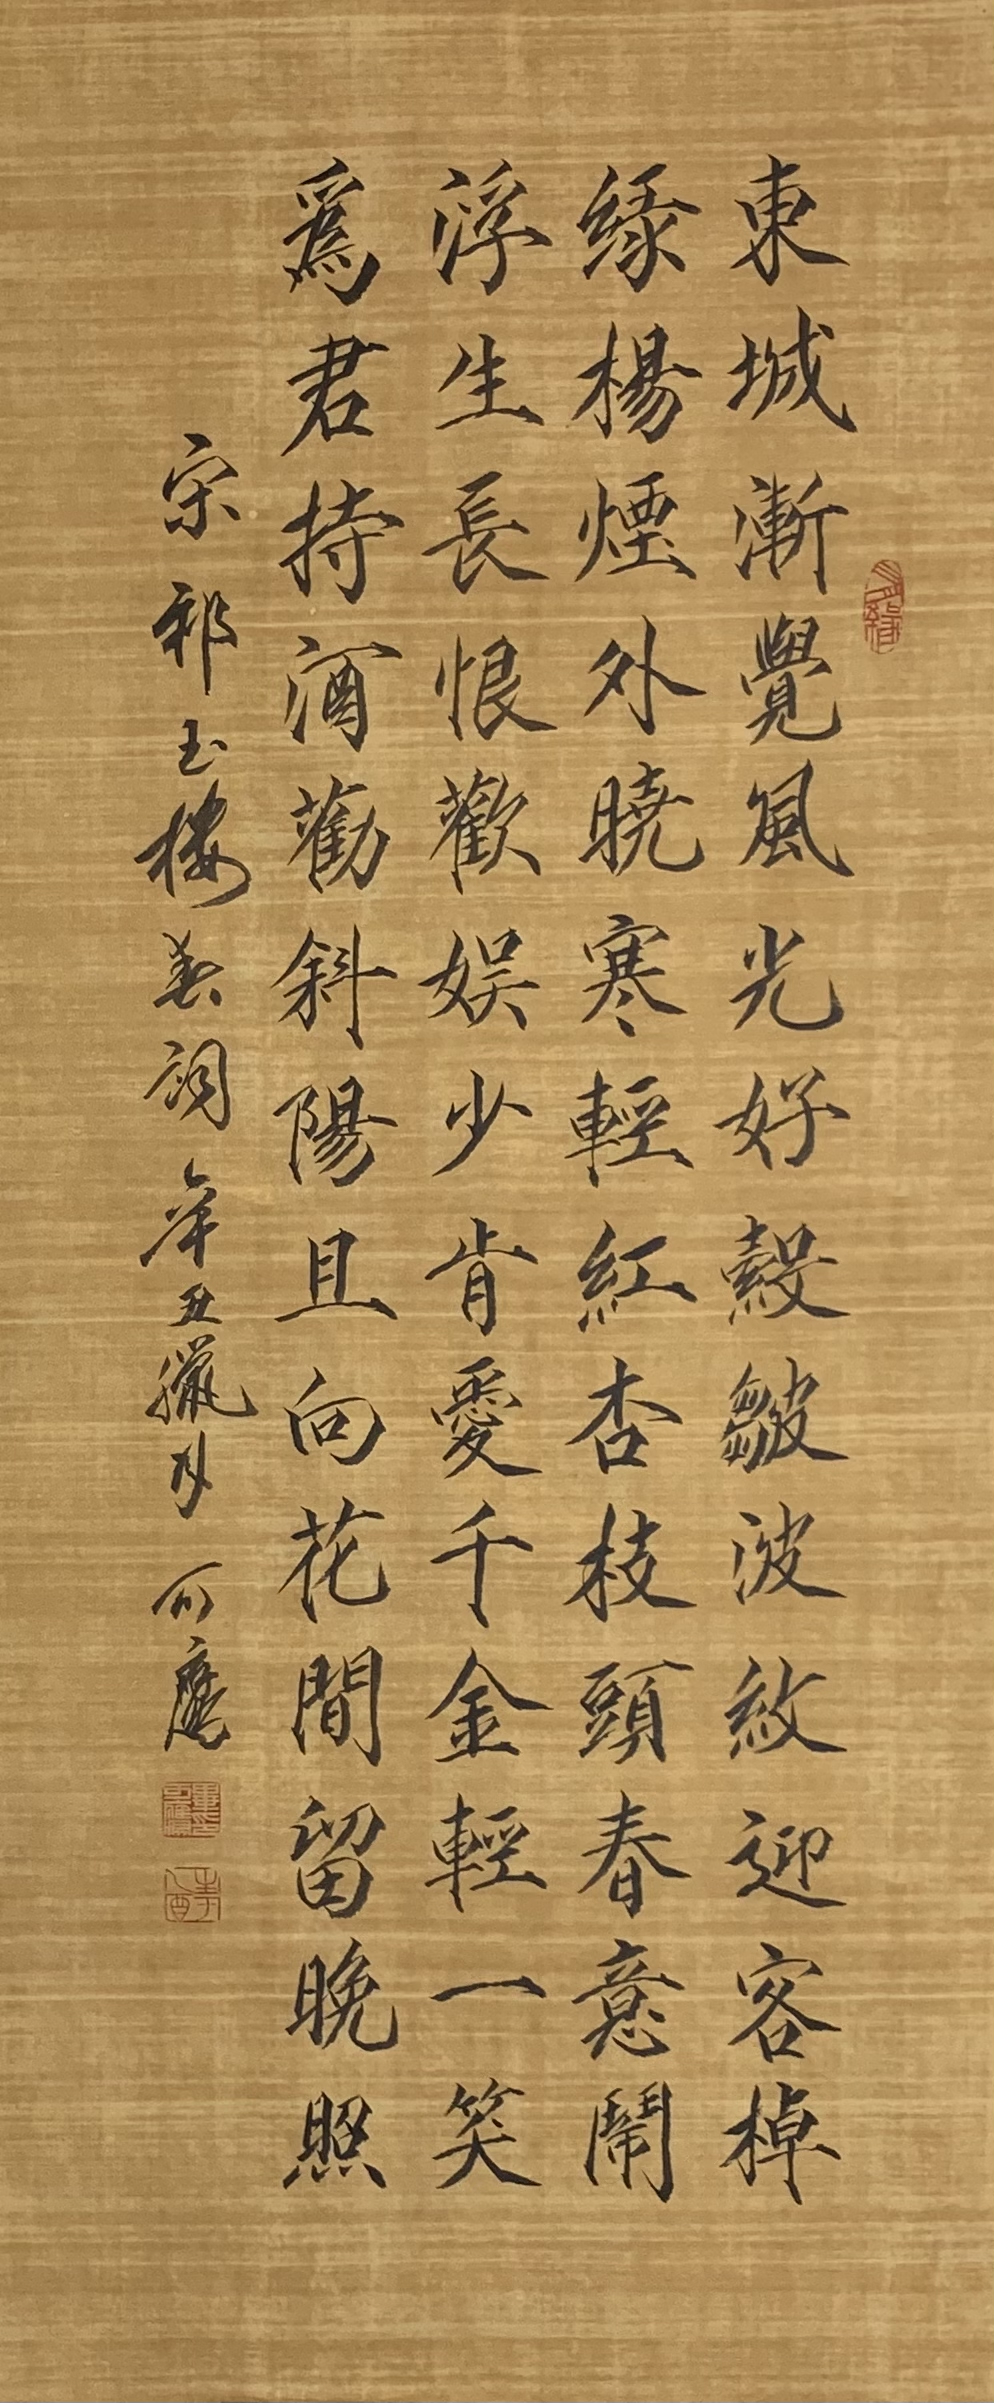 東城漸覺風光好縠皺波紋迎客棹
綠楊煙外曉寒輕紅杏枝頭春意鬧
浮生長恨歡娛少肯愛千金輕一笑
爲君持酒勸斜陽且向花間留晚照
宋祁玉樓春詞 辛丑臘月